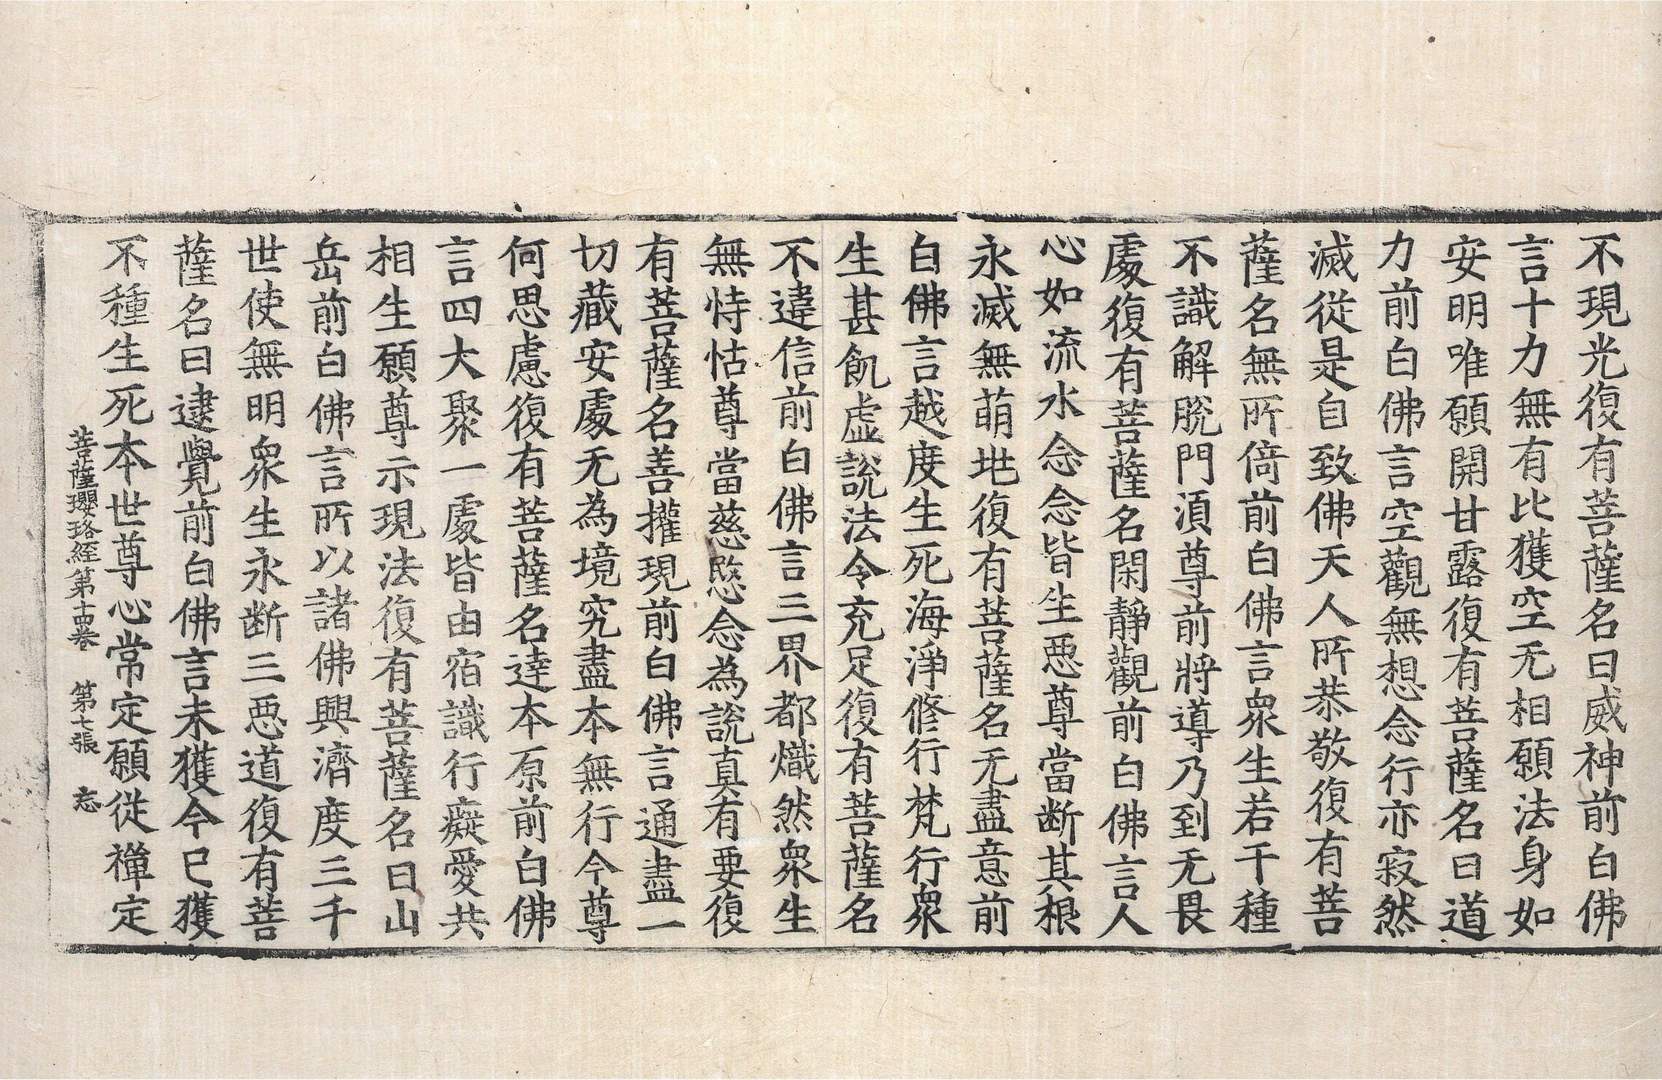 不現光復有菩薩名曰威神前白佛
言十力無有比獲空无相願法身如
安明唯願開甘露復有菩薩名曰道
力前白佛言空觀無想念行亦寂然
滅從是自致佛天人所恭敬復有菩
薩名無所倚前白佛言衆生若干種
不識解脫門湏尊前將導乃到无畏
處復有菩薩名閑靜觀前白佛言人
心如流水念念皆生惡尊當断其根
永滅無萌兆復有菩薩名无盡意前
白佛言越度生死海淨修行梵行衆
生甚飢虛說法令充足復有菩薩名
不違信前白佛言三界都熾然衆生
無恃怙尊當慈愍念為說真有要復
有菩薩名善權現前白佛言通盡一
切藏安處无為境究盡本無行今尊
何思慮復有菩薩名達本原前白佛
言四大聚一處皆由宿識行癡愛共
相生願尊示現法復有菩薩名曰山
岳前白佛言所以諸佛興濟度三千
世使無明衆生永断三惡道復有菩
薩名曰逮覺前白佛言未獲今已獲
不種生死本世尊心常定願從禪定
菩薩瓔珞經第十四卷　第七張　忘